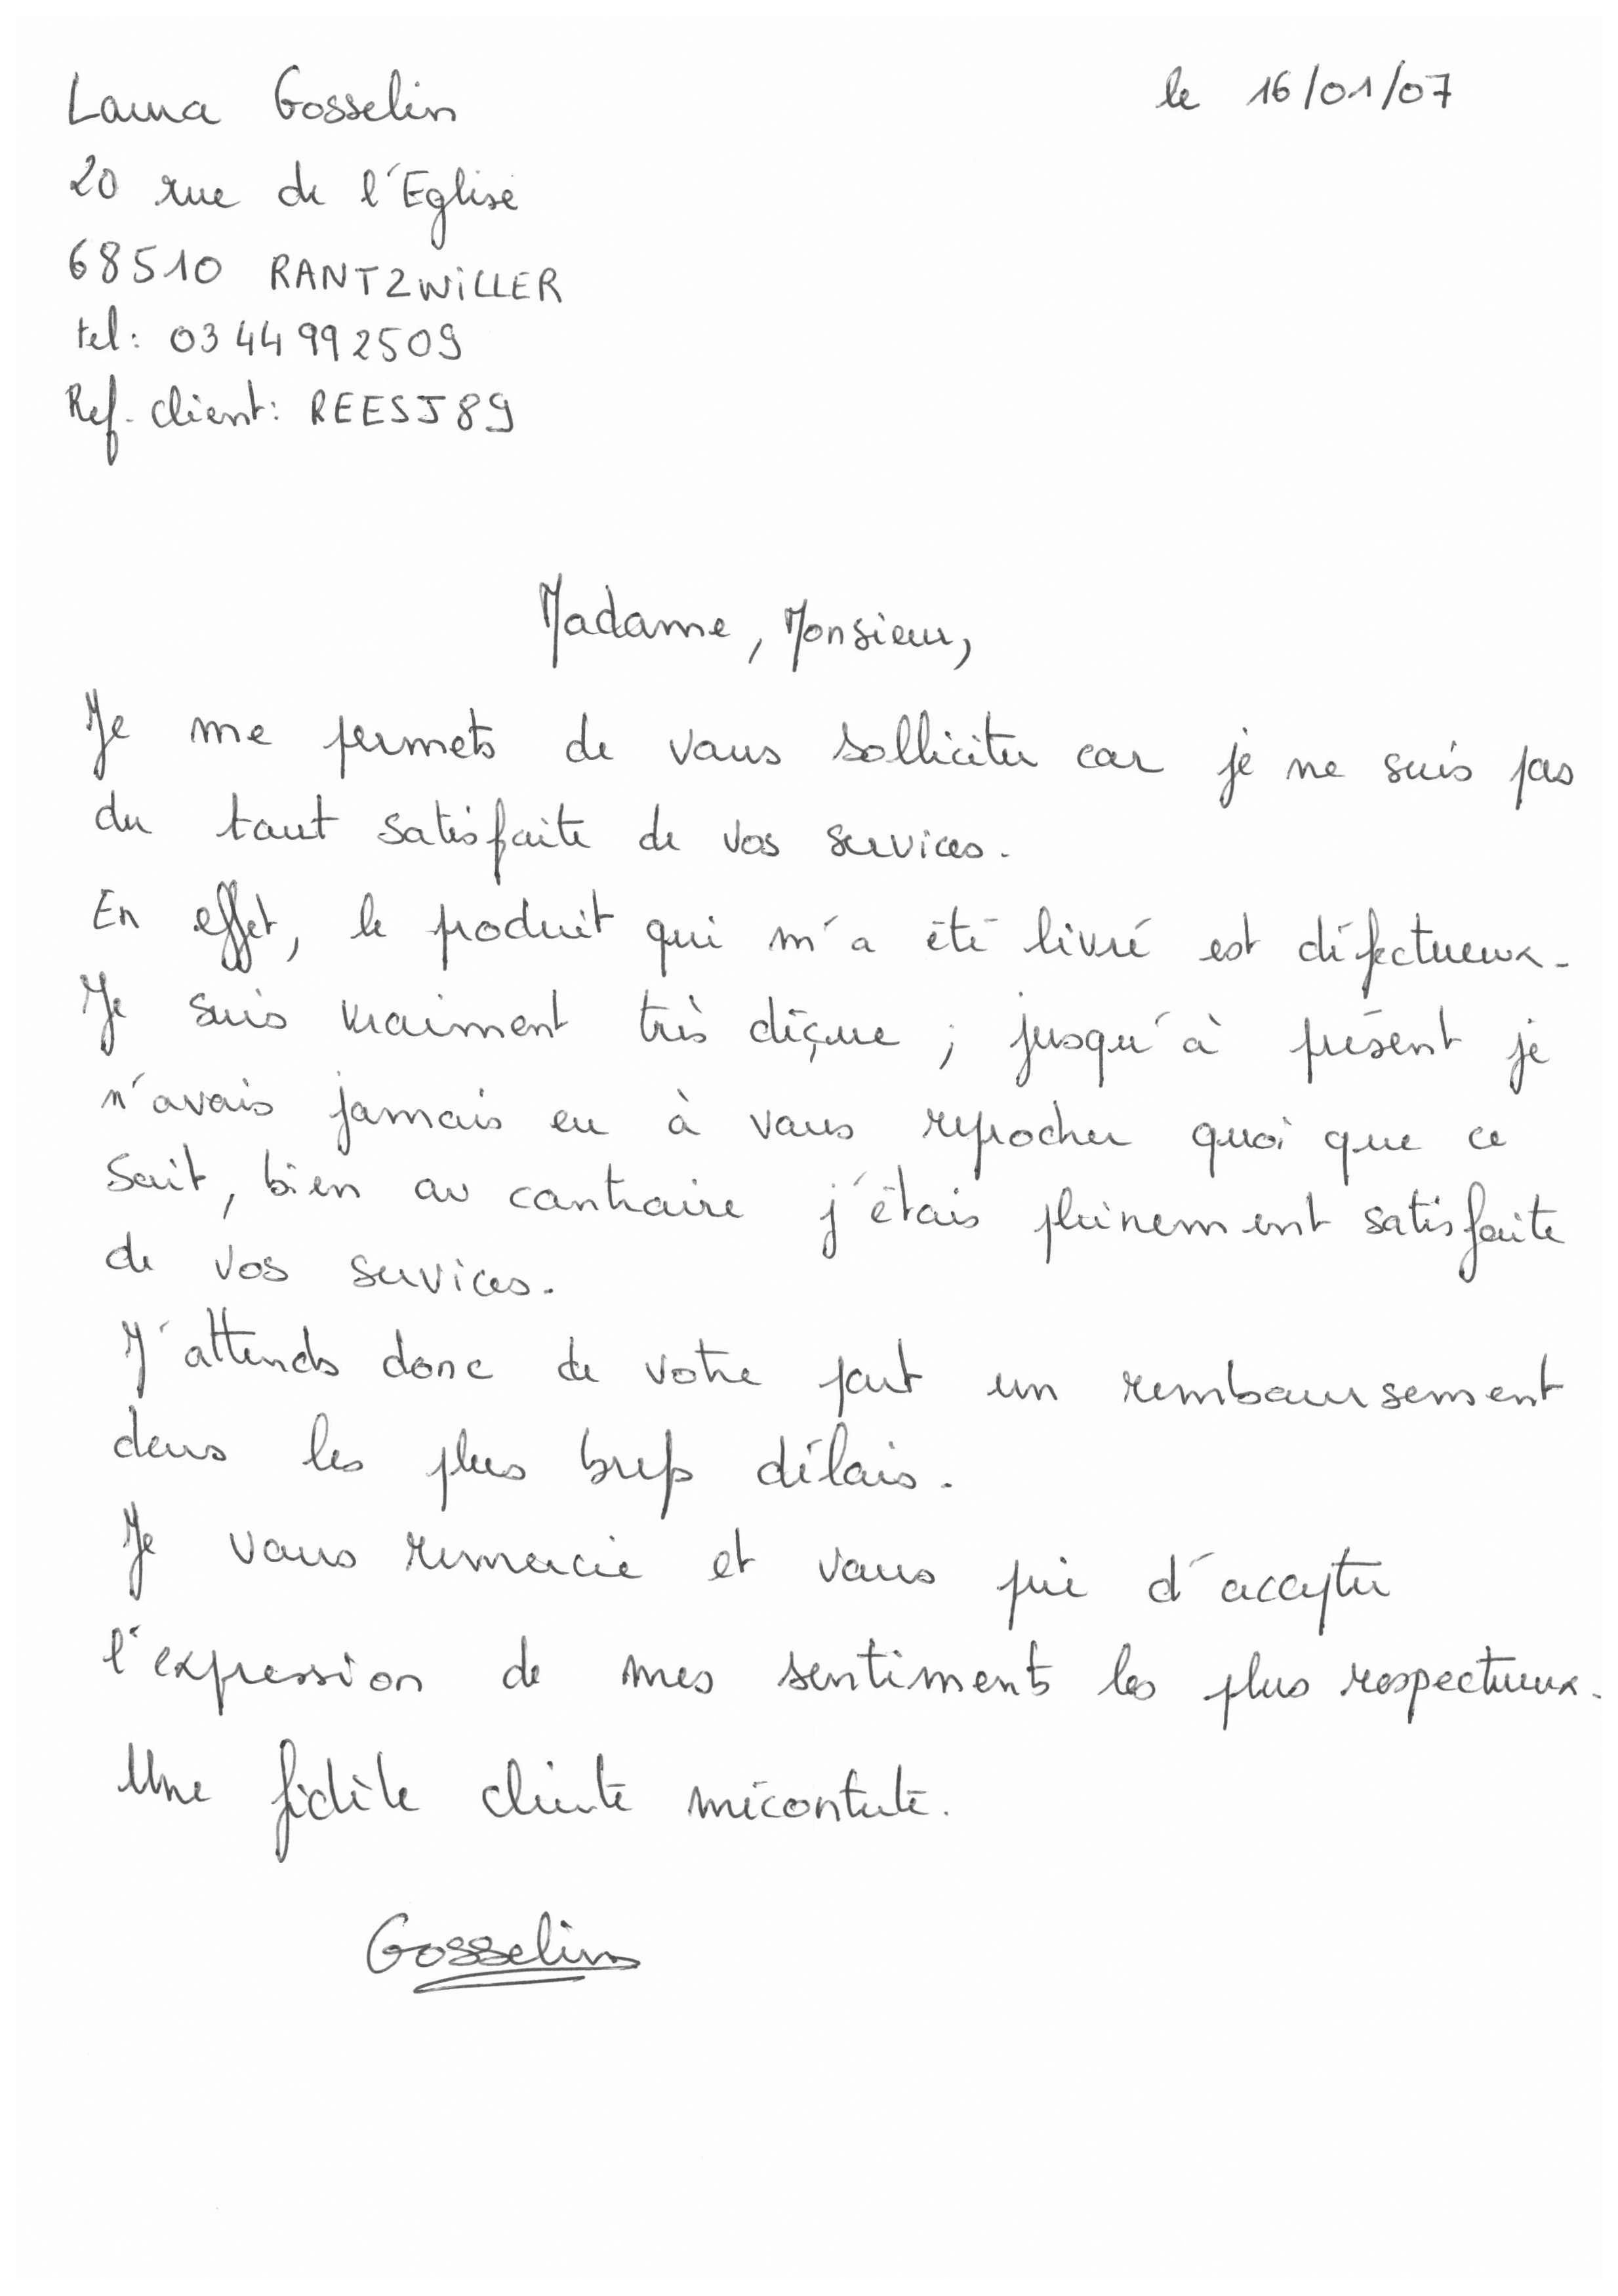 Laura Gosselin
le 16/01/07
20 rue de l'Eglise
68510 RANTZWILLER
tel: 03 44 99 25 09
Ref. client: REESJ89
Madame, Monsieur,
Je me permets de vous solliciter car je ne suis pas
du tout satisfaite de vos services.
En effet, le produit qui m'a été livré est défectueux.
Je suis vraiment très déçue ; jusqu'à présent je
n'avais jamais eu à vous reprocher quoi que ce
soit, bien au contraire j'étais pleinement satisfaite
de vos services.
J'attends donc de votre part un remboursement
dans les plus brefs délais.
Je vous remercie et vous prie d'accepter
l'expression de mes sentiments les plus respectueux.
Une fidèle cliente mécontente.
Gosselin